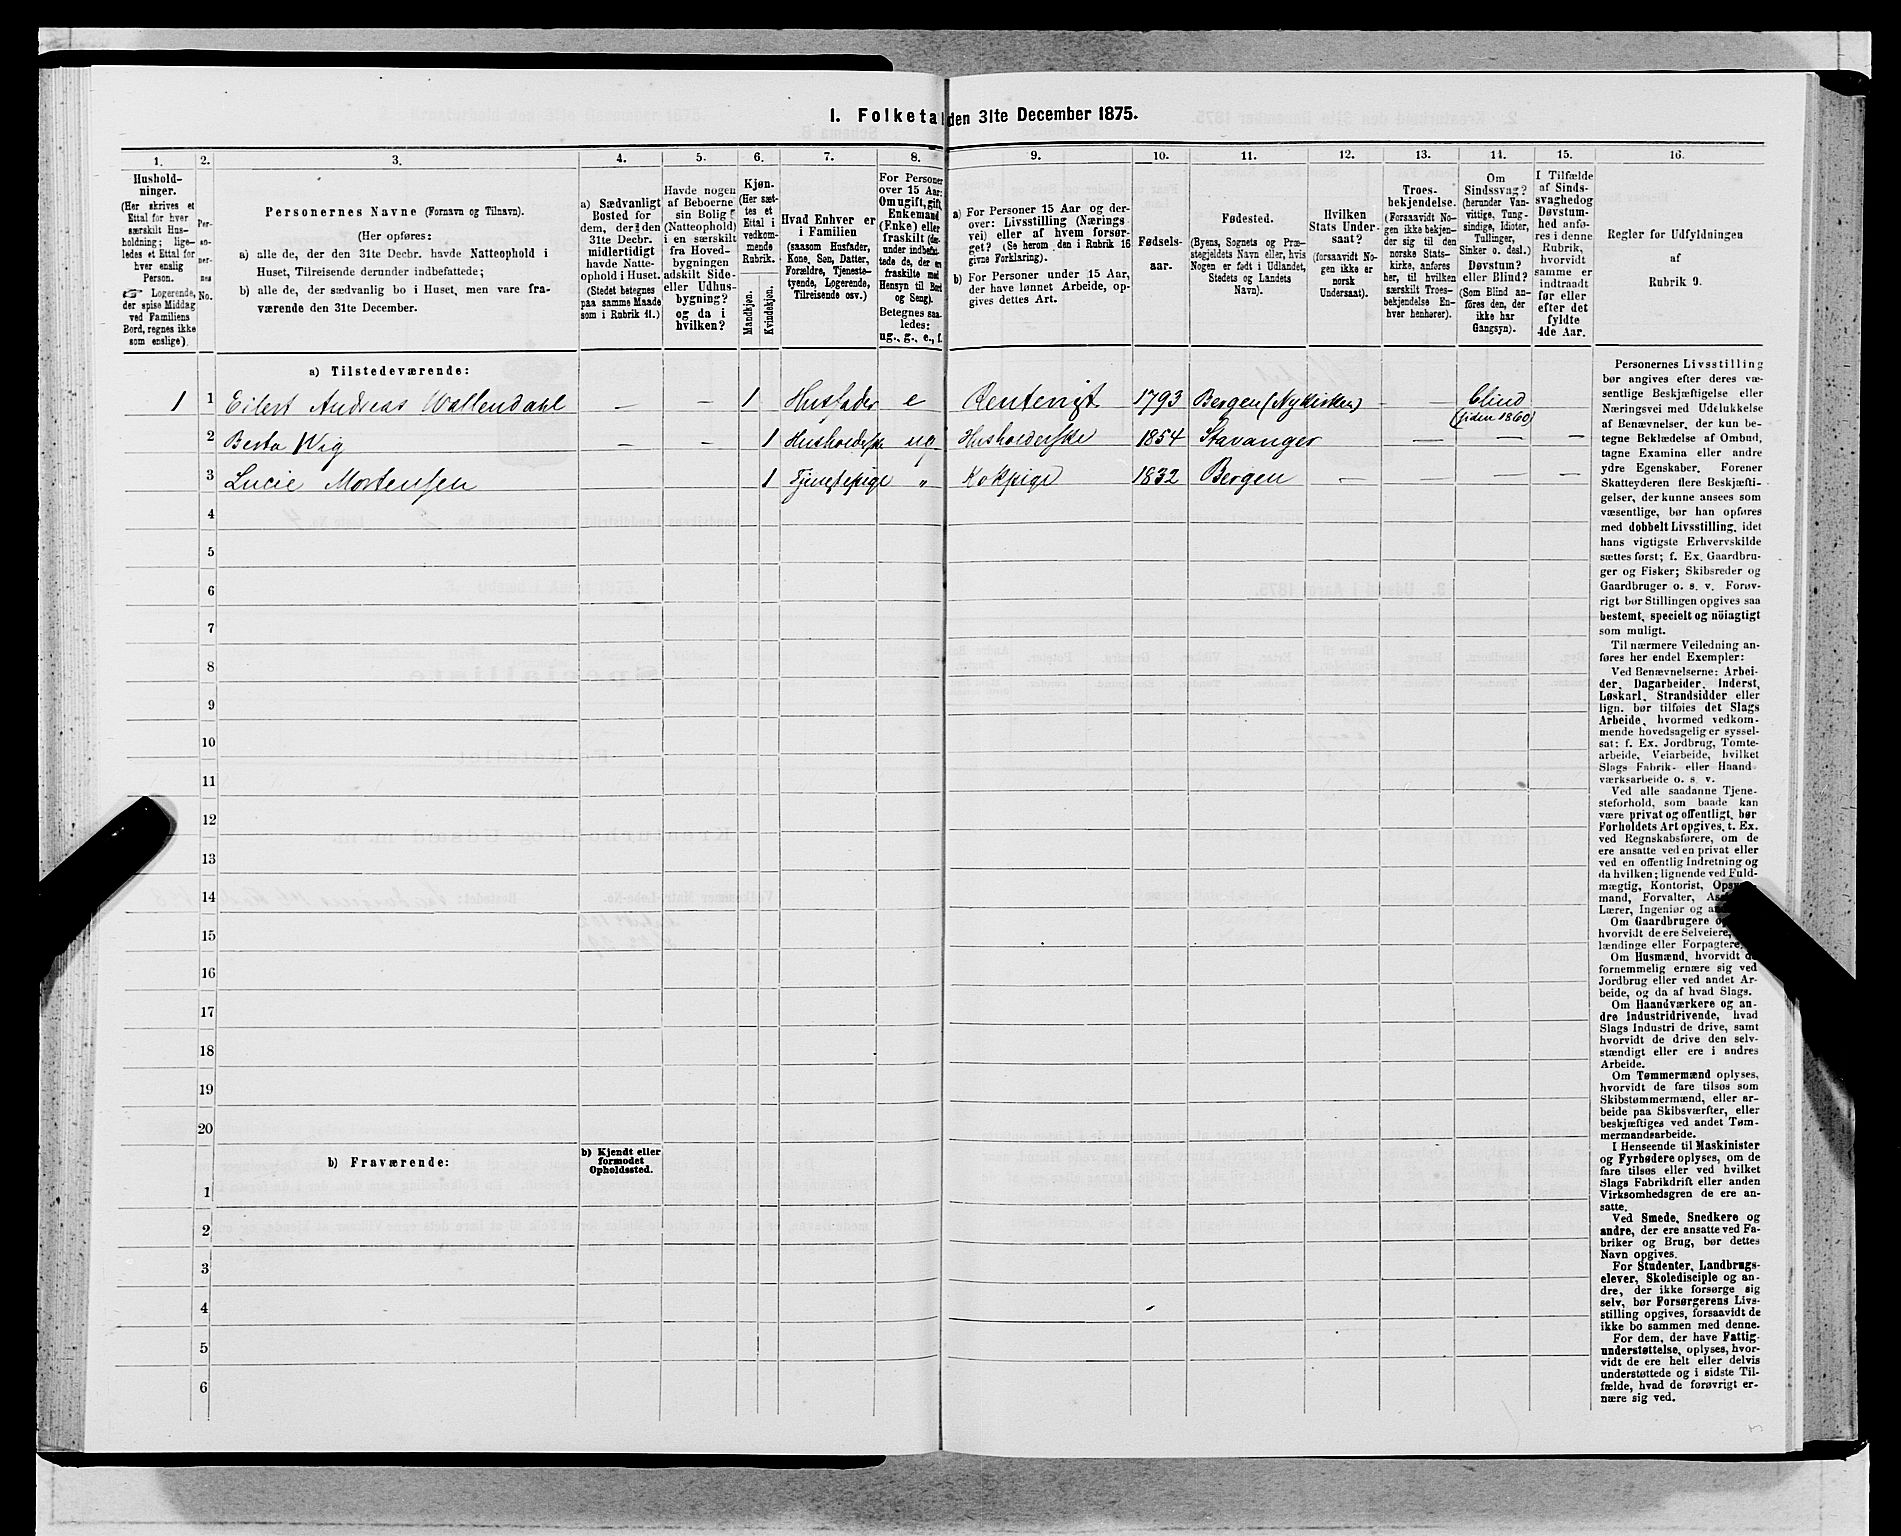 I. Folketal den 31te December 1875.
1. 2. 3. 4. 5. 6. 7. 8. 9. 10. 11. 12. 13. 14. 15. 16.
Hushold-
ninger.
(Her skrives et
Ettal for hver
særskilt Hus-
holdning; lige-
ledes et Ettal for
hver enslig
Person.
☞ Logerende,
der spise Middag
ved Familiens
Bord, regnes ikke
som enslige).
Per-
so-
ner-
nes
No.
Personernes Navne (Fornavn og Tilnavn).
(Her opføres:
a) alle de, der den 31te Decbr. havde Natteophold i
Huset, Tilreisende derunder indbefattede;
b) alle de, der sædvanlig bo i Huset, men vare fra-
værende den 31te December.
a) Sædvanligt
Bosted for
dem, der den
31te Decbr.
midlertidigt
havde Natte-
ophold i Huset.
(Stedet betegnes
paa samme Maade
som i Rubrik 11.)
Havde nogen
af Beboerne
sin Bolig
(Natteophold)
i en særskilt
fra Hoved-
bygningen
adskilt Side-
eller Udhus-
bygning?
og da i
hvilken?
Kjøn.
(Her sæt-
tes et
Ettal i
vedkom-
mende
Rubrik.
Mandkjøn.
Kvindekjøn.
Hvad Enhver er
i Familien
(saasom Husfader,
Kone, Søn, Datter,
Forældre, Tjeneste-
tyende, Logerende,
Tilreisende osv.)
For Personer
over 15 Aar:
Om ugift, gift,
Enkemand
(Enke) eller
fraskilt (der-
under indbefat-
tede de, der er
fraskilte med
Hensyn til Bord
og Seng).
Betegnes saa-
ledes:
ug., g., e., f.
a) For Personer 15 Aar og der-
over: Livsstilling (Nærings
vei) eller af hvem forsør-
get? (Se herom den i Rubrik 16
givne Forklaring).
b) For Personer under 15 Aar,
der have lønnet Arbeide, op-
gives dettes Art.
Fødsels-
aar.
Fødested.
(Byens, Sognets og Præ-
stegjeldets Navn eller, hvis
Nogen er født i Udlandet,
Stedets og Landets
Navn).
Hvilken
Stats Under-
saat?
(forsaavidt No-
gen ikke er
norsk
Undersaat).
Troes-
bekjendelse.
(Forsaavidt No-
gen ikke bekjen-
der sig til den
norske Stats-
kirke, anføres
her, til hvilken
særskilt Troes-
bekjendelse En-
hver henhører).
Om
Sindssvag?
(herunder Van-
vittige, Tung-
sindige, Idioter,
Tullinger,
Sinker o. desl.)
Døvstum?
eller Blind?
(Som Blind an-
føres den, der
ikke har
Gangsyn).
I Tilfælde
af Sinds-
svaghed og
Døvstum-
hed anfø-
res i denne
Rubrik,
hvorvidt
samme er
indtraadt
før eller
efter det
fyldte
4de Aar.
Regler for Udfyldningen
af
Rubrik 9.
a) Tilstedeværende:
1 1 Eilert Andreas Wallendahl — — 1 Husfader e Rentenist 1793 Bergen (Nykirken) — — blind
(siden 1860)
2 Berta Wiig — — 1 Husholderske ug Husholderske 1854 Stavanger — — —
3 Lucie Mortensen 1 Tjenstepige " Kokpige 1832 Bergen — — — —
4
5
6
7
8
9
10
11
12
13
14
15
16
17
18
19
20
b) Fraværende:
b) Kjendt eller
formodet
Opholdssted.
1
2
3
4
5
6
Personernes Livsstilling
bør angives efter deres væ-
sentlige Beskjæftigelse eller
Næringsvei med Udelukkelse
af Benævnelser, der kun be-
tegne Beklædelse af Ombud,
tagne Examina eller andre
ydre Egenskaber. Forener
Skatteyderen flere Beskjæfti-
gelser, der kunne ansees som
væsentlige, bør han opføres
med dobbelt Livsstilling, idet
hans vigtigste Erhvervskilde
sættes først; f. Ex. Gaardbru-
ger og Fisker; Skibsreder og
Gaardbruger o. s. v. Forøv-
rigt bør Stillingen opgives saa
bestemt, specielt og nöiagtigt
som muligt.
Til nærmere Veiledning an-
føres her endel Exempler:
Ved Benævnelserne: Arbei-
der, Dagarbeider, Inderst,
Løskarl, Strandsidder eller
lign. bør tilføies det Slags
Arbeide, hvormed vedkom-
mende hovedsagelig er syssel-
sat; f. Ex. Jordbrug, Tomte-
arbeide, Veiarbeide, hvilket
Slags Fabrik- eller Haand
værksarbeide o. s. v.
Ved alle saadanne Tjene-
steforhold, som baade kan
være privat og offentligt, bør
Forholdets Art opgives, t. Ex.
ved Regnskabsførere, om de
ere ansatte ved en privat eller
ved en offentlig Indretning og
da hvilken; lignende ved Fuld-
mægtig, Kontorist,
mand, Forvalter,
Lærer, Ingeniør og
Om Gaardbrugere
hvorvidt de ere Selveiere,
lændinge eller Forpagtere.
Om Husmænd, hvorvidt de
fornemmelig ernære sig ved
Jordbrug eller ved andet Ar-
beide, og da af hvad Slags.
Om Haandværkere og an-
dre Industridrivende, hvad
Slags Industri de drive, samt
hvorvidt de drive den selv-
stændigt eller ere i andres
Arbeide.
Om Tømmermænd oplyses,
hvorvidt de fare tilsøs som
Skibstømmermænd, eller ar-
beide paa Skibsværfter, eller
beskjæftiges ved andet Tøm-
mermandsarbeide.
I Henseende til Maskinister
og Fyrbødere oplyses, om de
fare tilsøs eller ved hvilket
Slags Fabrikdrift eller anden
Virksomhedsgren de ere an-
satte.
Ved Smede, Snedkere og
andre, der ere ansatte ved Fa-
briker og Brug, bør dettes
Navn opgives.
For Studenter, Landbrugs-
elever, Skoledisciple og an-
dre, der ikke forsørge sig
selv, bør Forsørgerens Livs-
stilling opgives, forsaavidt de
ikke bo sammen med denne.
For dem, der have Fattig-
understøttelse, oplyses, hvor-
vidt de ere helt eller delvis
understøttede og i sidste Til-
fælde, hvad de forøvrigt er-
nære sig ved.